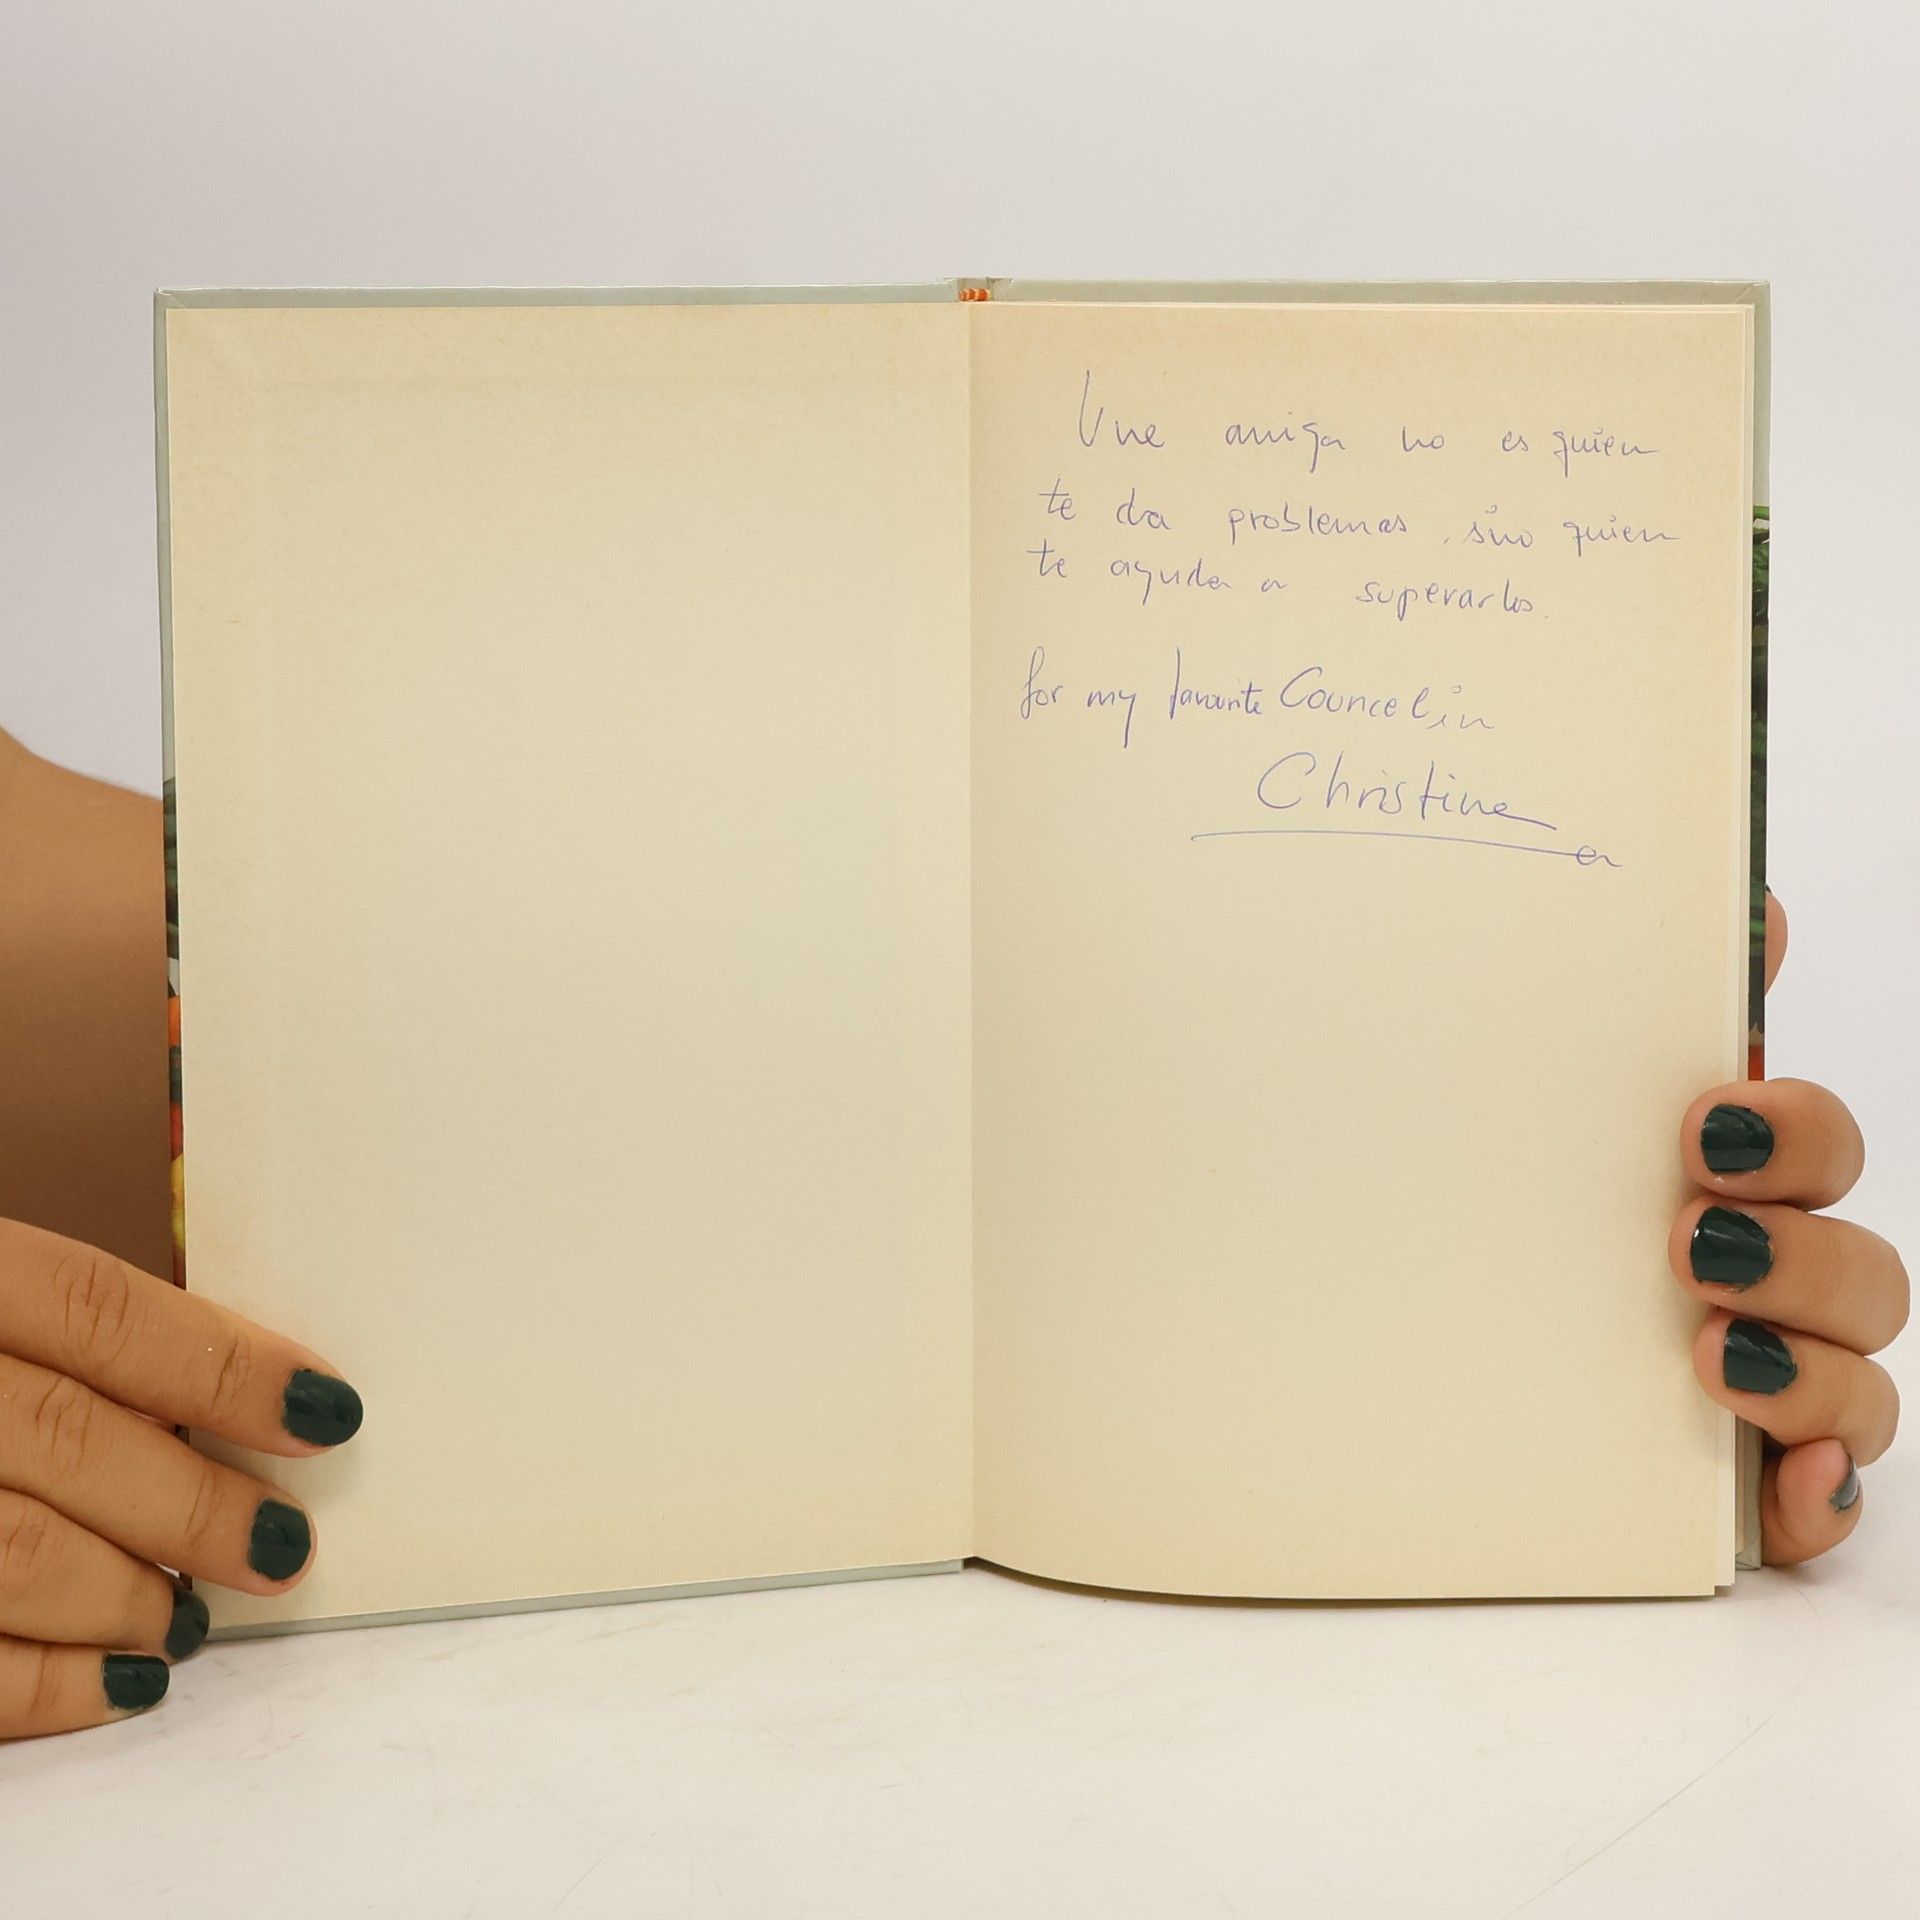 Una amiga no es quien
te da problemas, sino quien
te ayuda a superarlos.
for my favourite Councelin
Christine